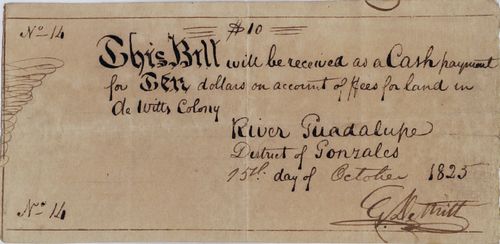 No 14
$10
This Bill will be received as a Cash payment
for Ten dollars on account of ffees for land in
de Witts Colony
River Guadalupe
District of Gonzales
15th day of October 1825
G. De Witt
No 14